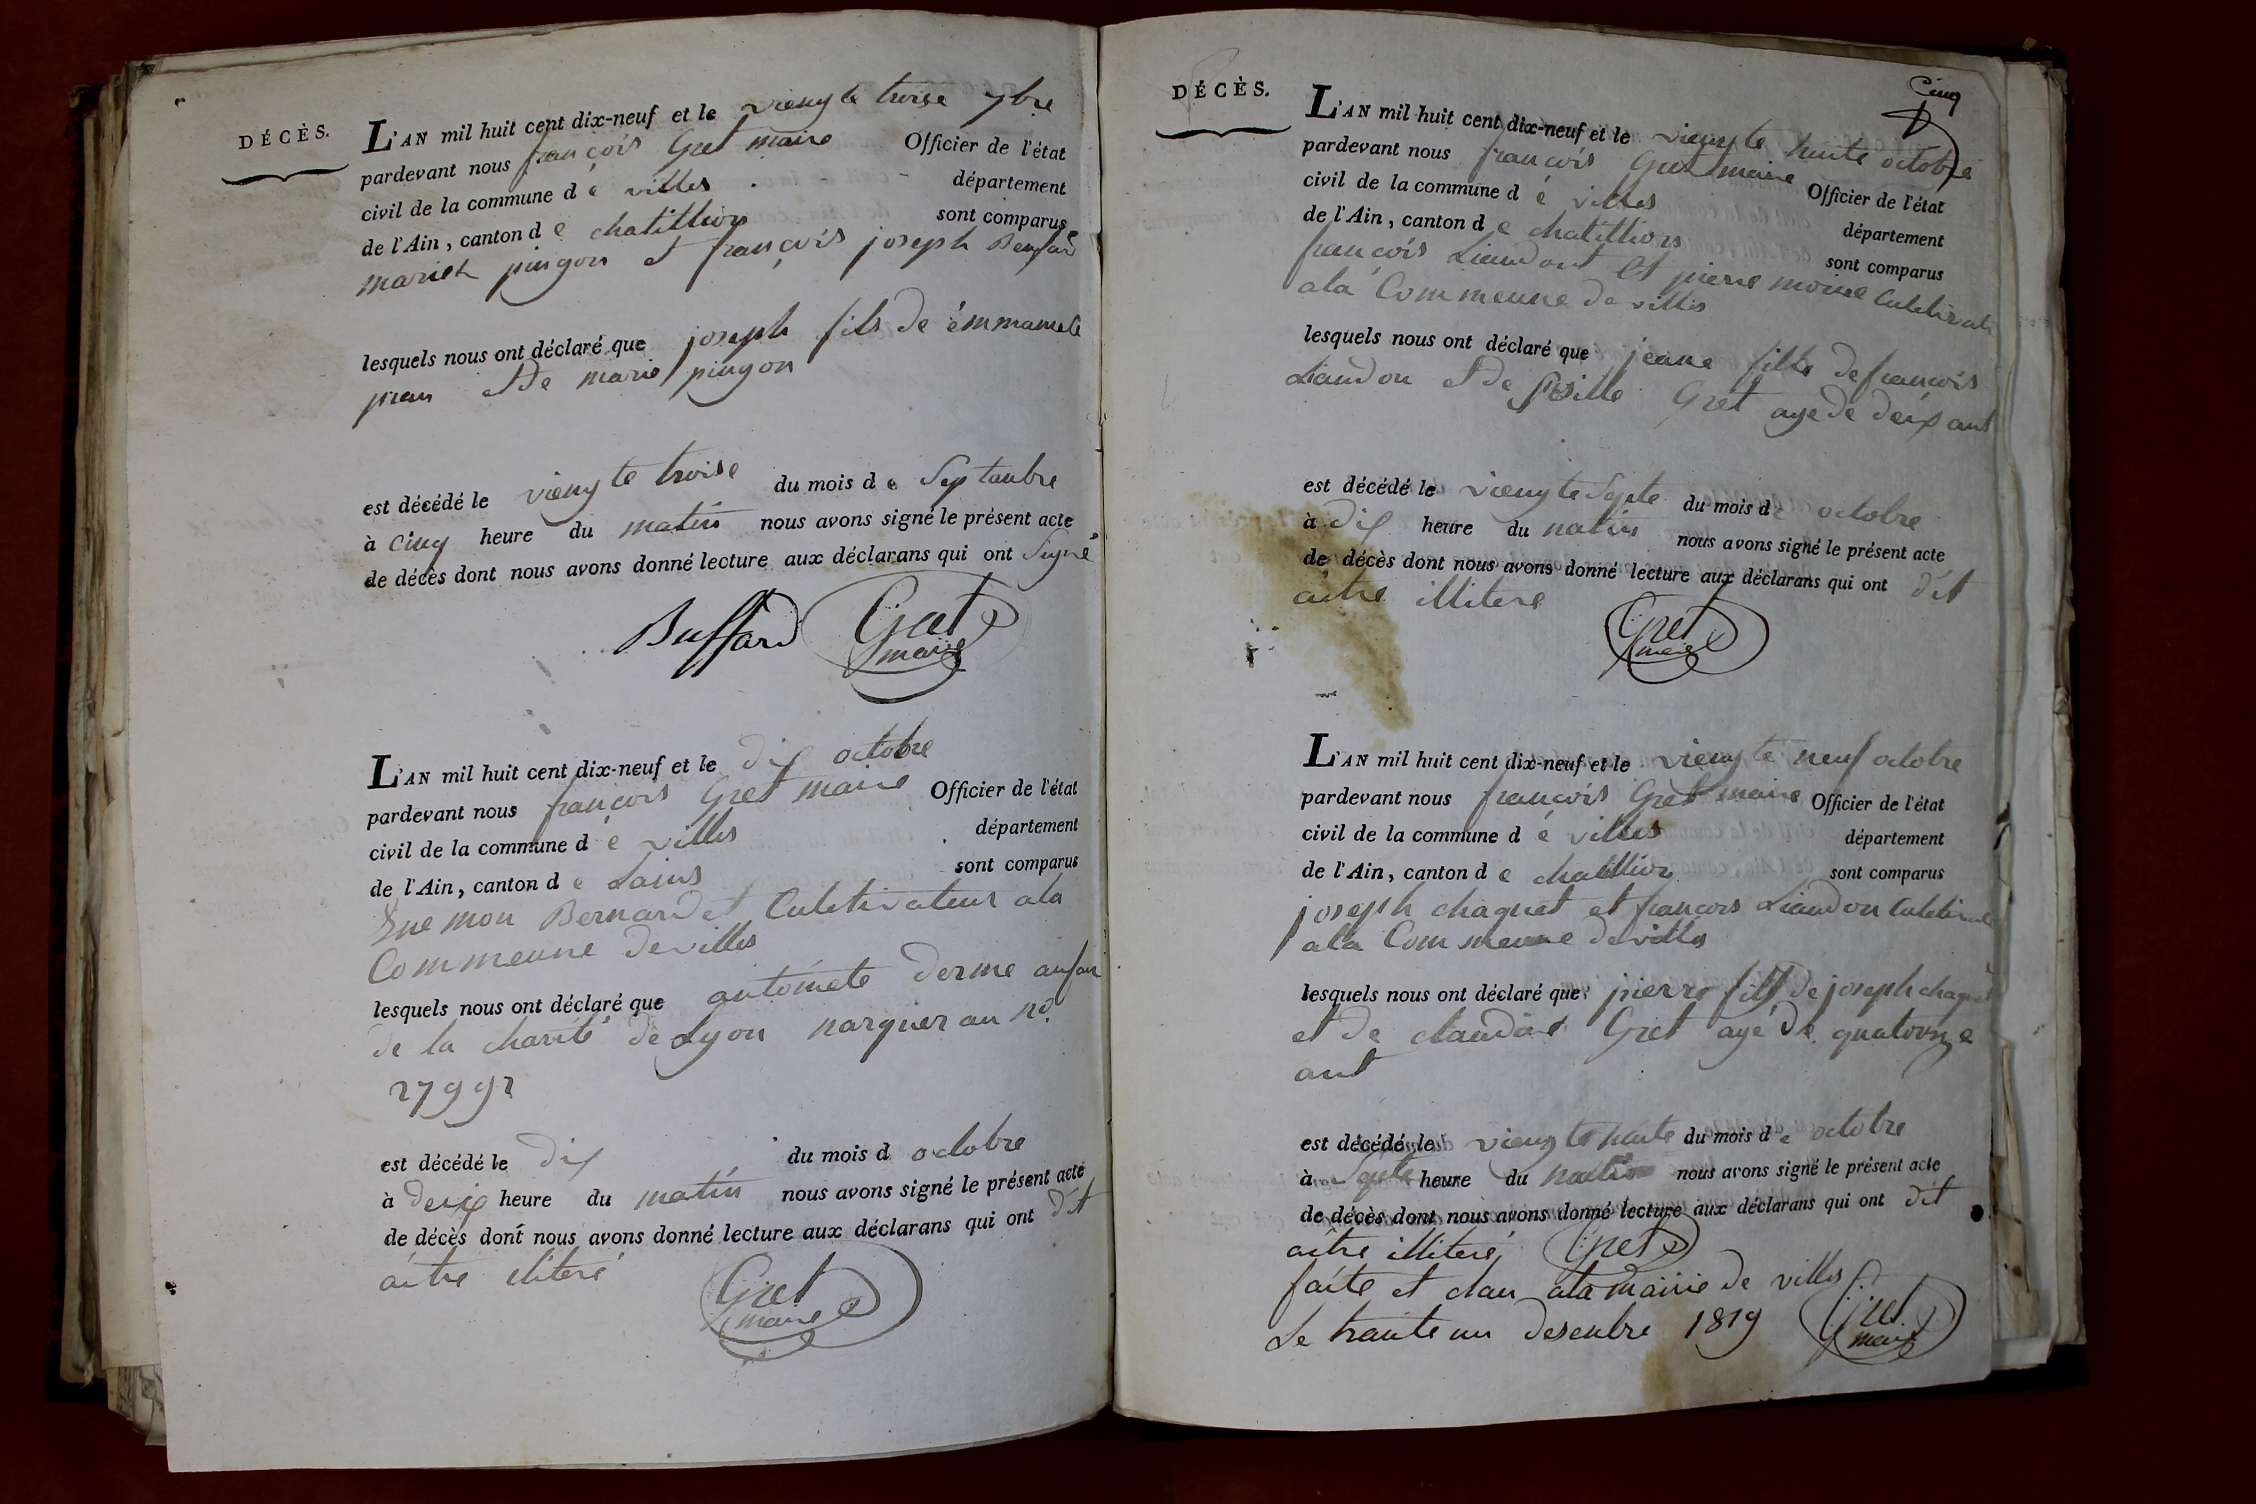 DÉCÈS.
L'AN mil huit cent dix-neuf et le viengte troise 7bre
pardevant nous françois Gret maire Officier de l'état
civil de la commune d é villes département
de l'Ain, canton d e chatillion sont comparus
mariet pingon et françois joseph
lesquels nous ont déclaré que joseph fils de émmanuele
et de marie pingon
est décédé le viengte troise du mois d e Septanbre
à cinq heure du matin nous avons signé le présent acte
de décès dont nous avons donné lecture aux déclarans qui ont Signé
Buffard Gret
maire
L'AN mil huit cent dix-neuf et le dix octobre
pardevant nous francois Gret maire Officier de l'état
civil de la commune d é villes département
de l'Ain, canton d e Lains sont comparus
Bernardet Culetivateur a la
Commeune de villes
lesquels nous ont déclaré que antoinete derme anfan
de la charité de Lyon marquer au no.
27992
est décédé le dix du mois d octobre
à deix heure du matin nous avons signé le présent acte
de décès dont nous avons donné lecture aux déclarans qui ont dit
aître iliteré
Gret
maire
Cinq
DÉCÈS.
L'AN mil huit cent dix-neuf et le viengte huite octobre
pardevant nous francois Gret maire Officier de l'état
civil de la commune d é villes département
de l'Ain, canton d e chatillion sont comparus
francois Liaudont et pierre moine Culetivate
a la Commeune de villes
lesquels nous ont déclaré que jeane fille de francois
Liaudon et de Gret age de deix ant
est décédé le viengte Septe du mois d e octobre
à dix heure du matin nous avons signé le présent acte
de décès dont nous avons donné lecture aux déclarans qui ont dit
aitre illitere
Gret
maire
L'AN mil huit cent dix-neuf et le viengte neuf octobre
pardevant nous francois Gret maire Officier de l'état
civil de la commune d é villes département
de l'Ain, canton d e chatillion sont comparus
joseph chaquet et francois Liaudon Culetivate
a la Commeune de villes
lesquels nous ont déclaré que pierre fils de joseph chaquet
et de claudine Gret agé de quatorze
ant
est décédé le viengte huite du mois d e octobre
à Septe heure du matin nous avons signé le présent acte
de décès dont nous avons donné lecture aux déclarans qui ont dit
aître illiteré Gret
faite et clau a la mairie de villes
Le trante un desenbre 1819 Gret
maire